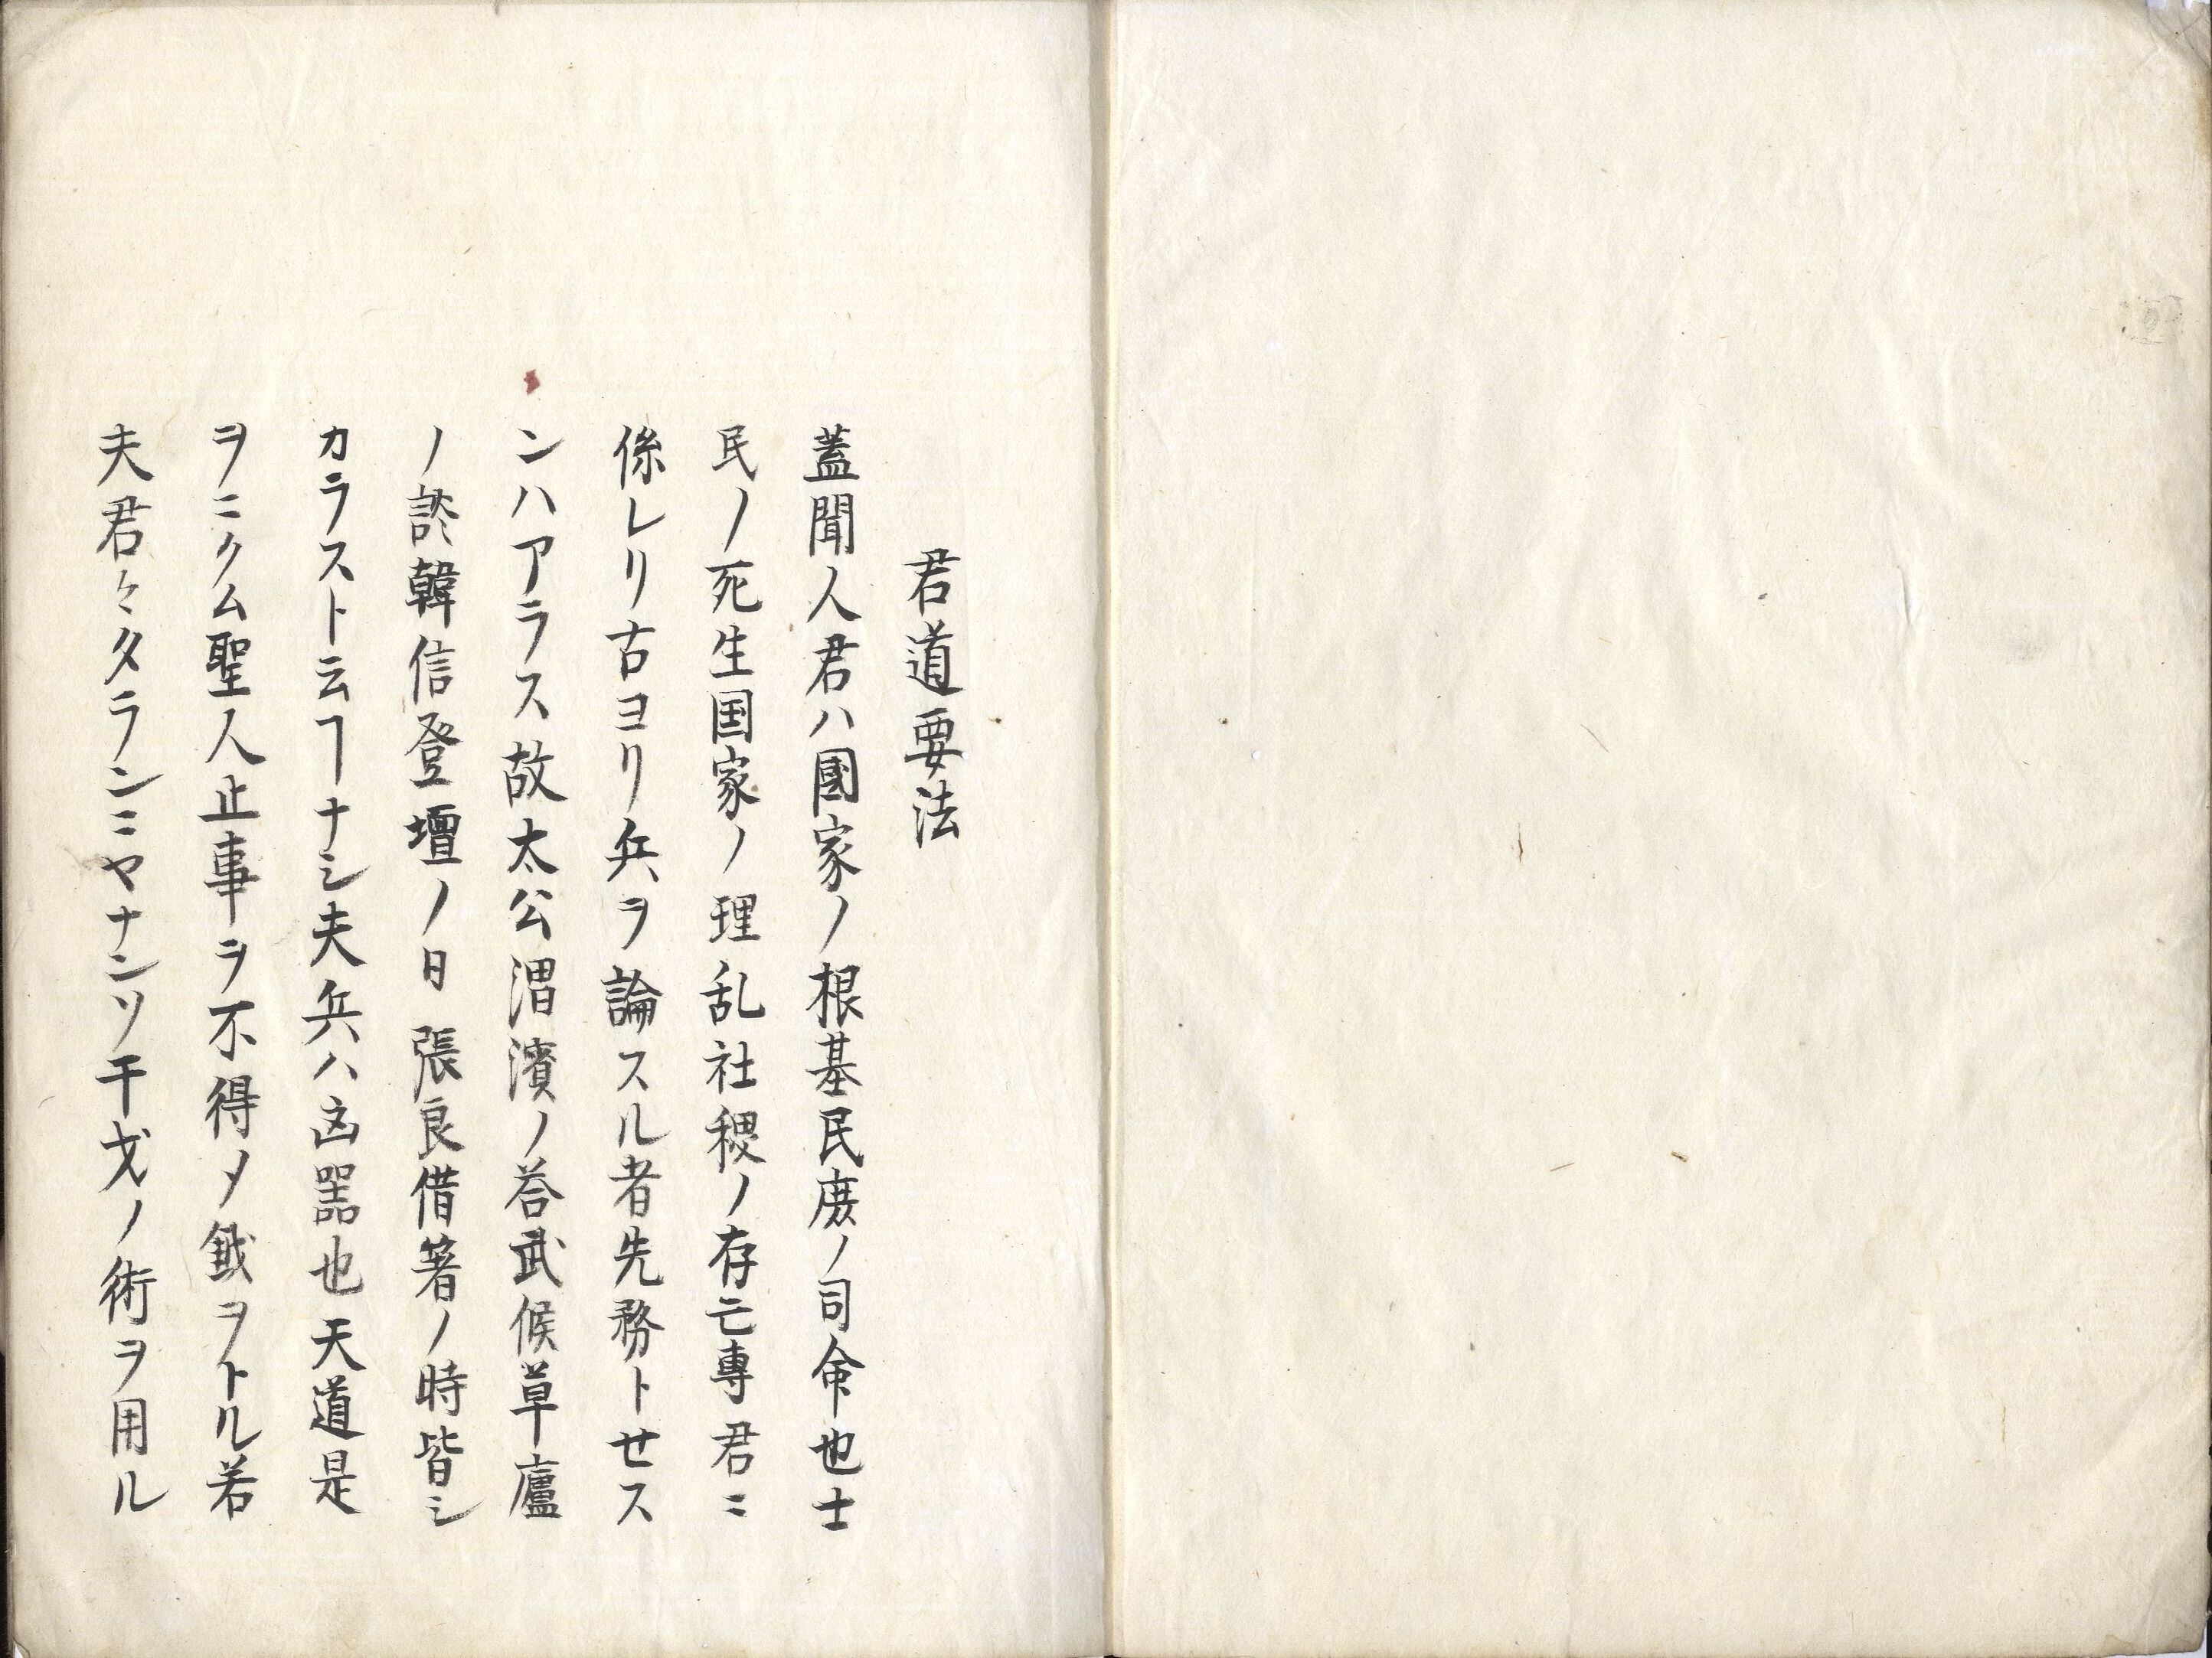 君道要法
蓋聞人君ハ國家ノ根基民庶ノ司命也士
民ノ死生国家ノ理乱社稷ノ存亡專君ニ
係レリ古ヨリ兵ヲ論スル者先務トセス
ンハアラス故太公渭濱ノ答武候草廬
ノ談韓信登壇ノ日張良借箸ノ時皆シ
カラスト云ヿナシ夫兵ハ凶噐也天道是
ヲニクム聖人止事ヲ不得〆鉞ヲトル若
夫君々タランニヤナンソ干戈ノ術ヲ用ル